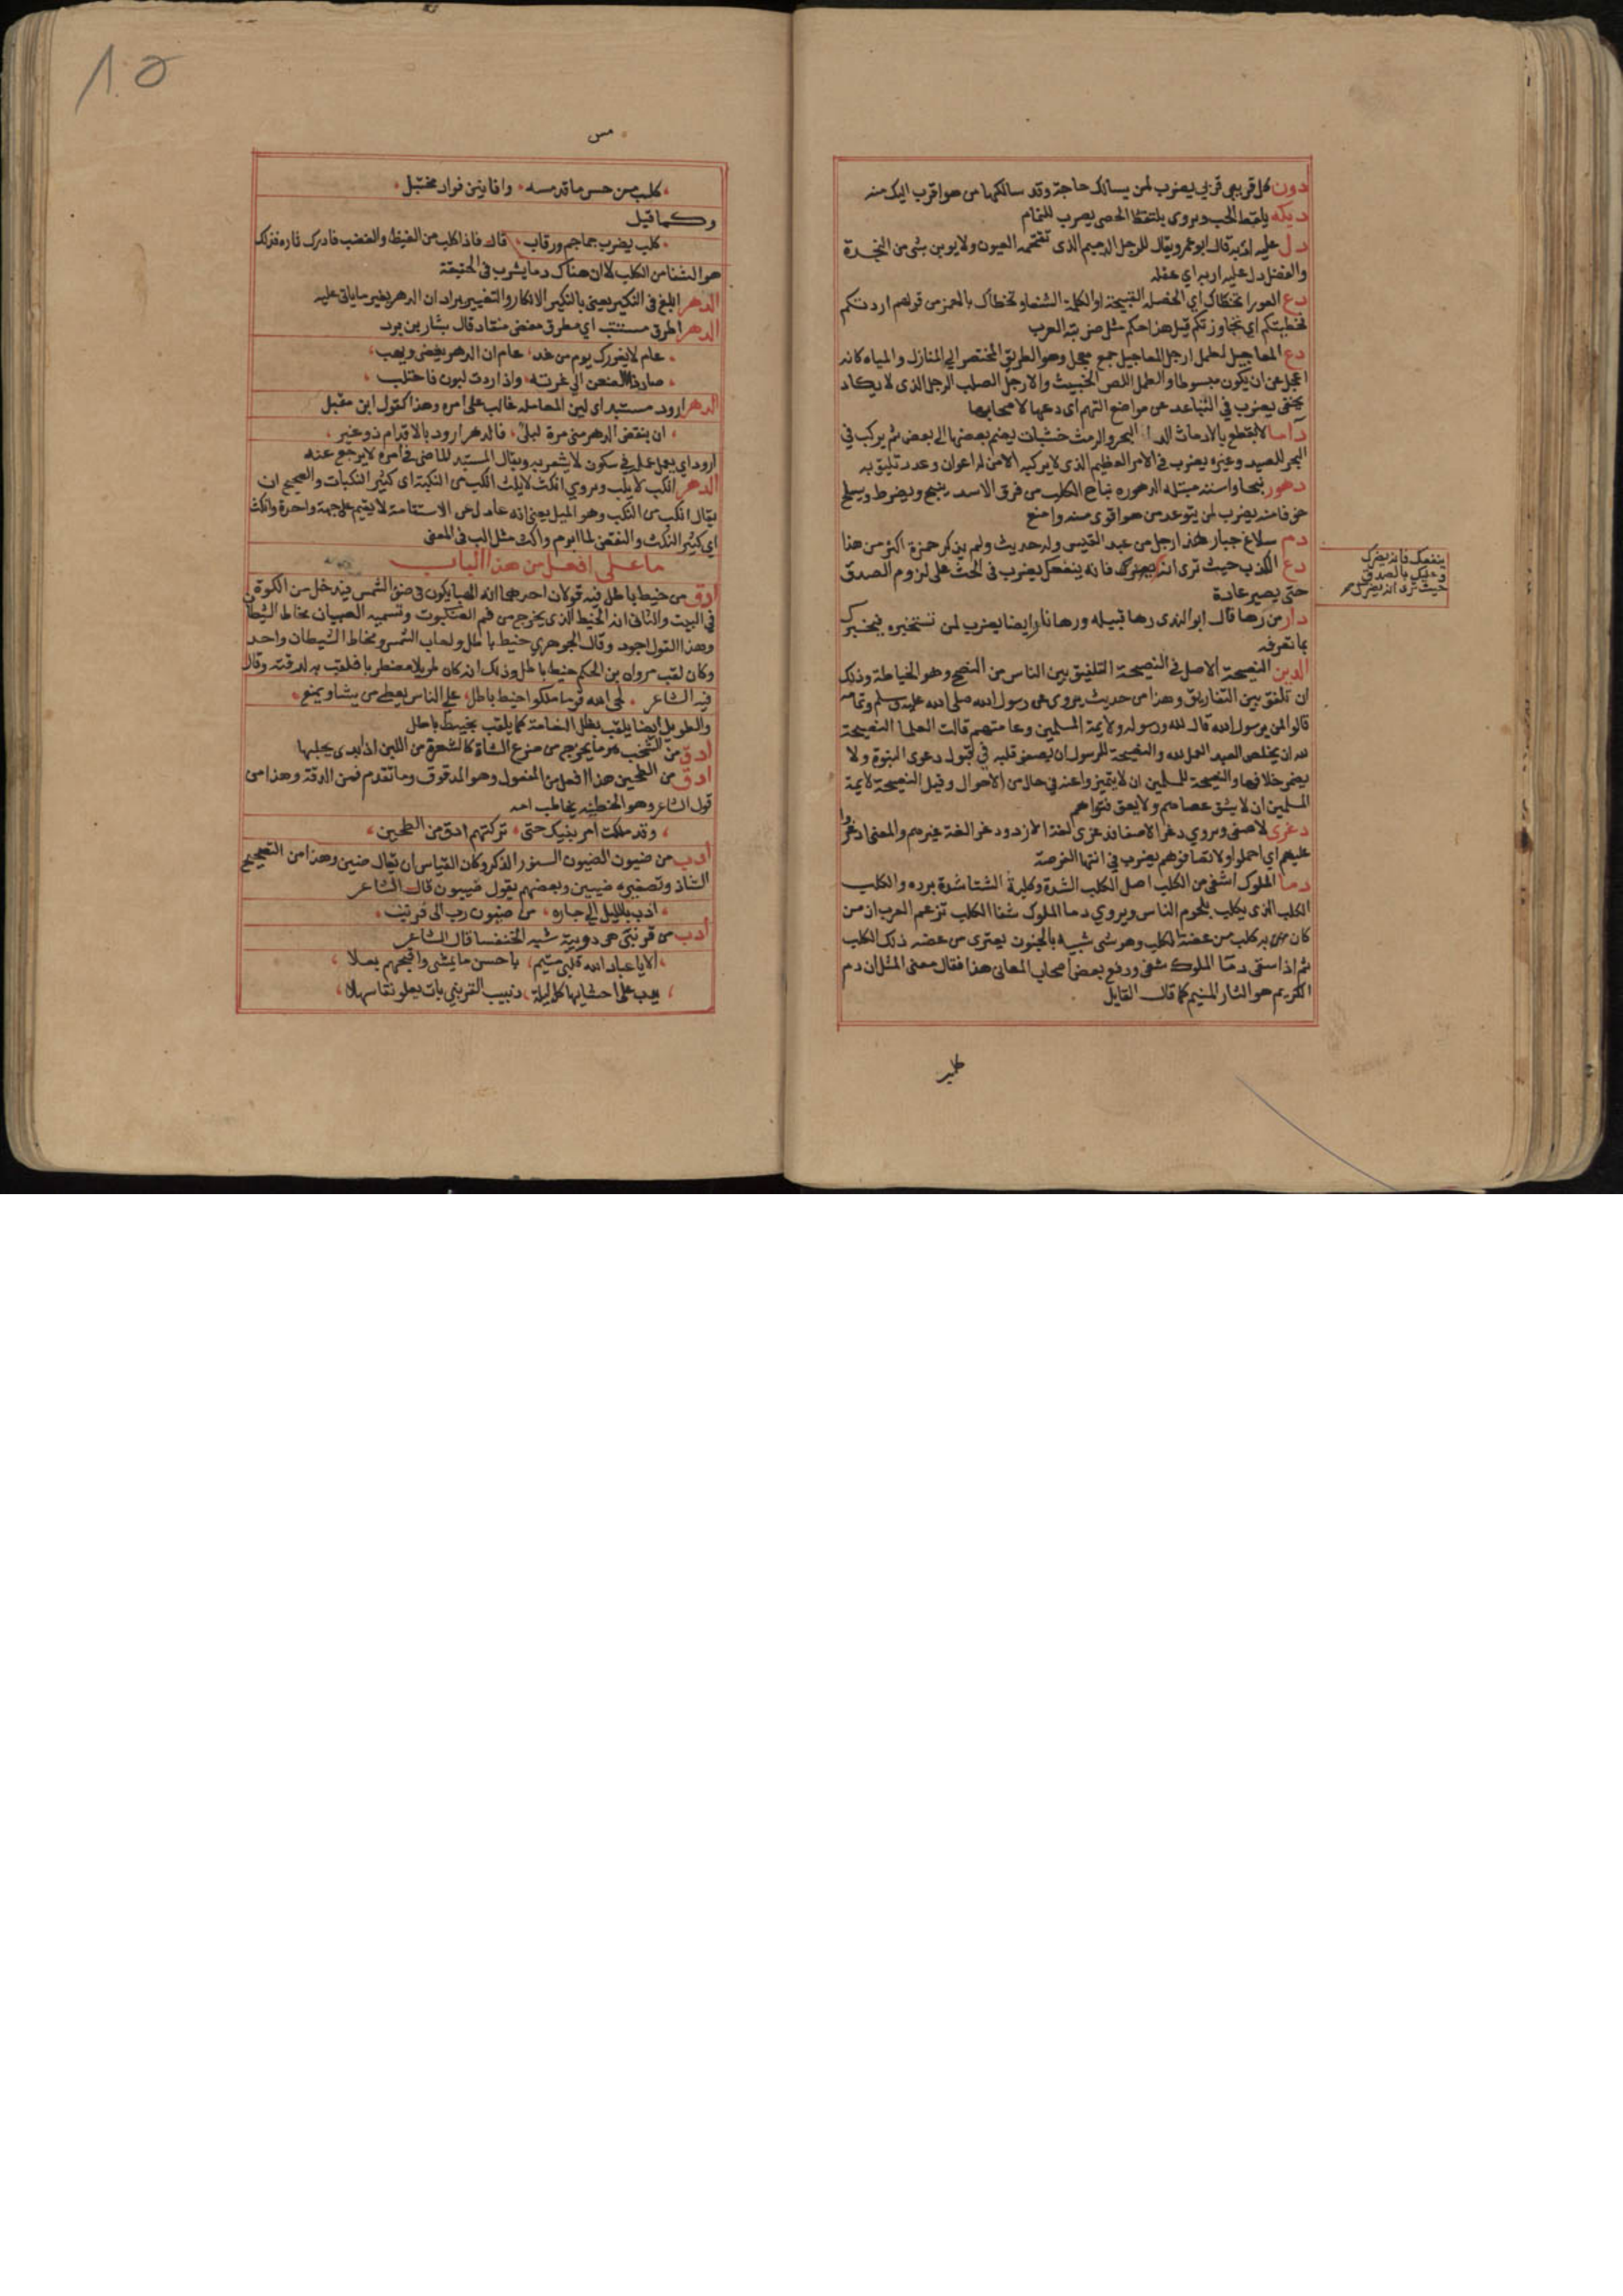 دون كل قريبي قربي يضرب لمن يسالك حاجة وقد سالكها من هو اقرب اليك منه
ديكه يلقط الحب ويروى يلتقط الحصى يضرب للنمام
دل عليه اربه قال ابو عمرو يقال للرجل الدميم الذى تقتحمه العيون ولا يوبن بشى من النجدة
والفضل دل عليه اربه اي عقله
دع العورا تخطاك اي الخصلة القبيحة او الكلمة الشنعا وتخطاك بالهمز من قولهم اردتكم
فخطيتكم اي تجاوزتكم قيل هذا حكم مثل ضربته العرب
دع المعاجيل لطمل ارجل المعاجيل جمع معجل وهو الطريق المختصر الي المنازل والمياه كانه
اعجل عن ان يكون مبسوطا والطمل اللص الخبيث والارجل الصلب الرجل الذى لا يكاد
يحفى يضرب في التباعد عن مواضع التهم اى دعها لاصحابها
داما لا يقطع بالارماث الداما البحر والرمث خشبات يضم بعضها الى بعض ثم يركب في
البحر للصيد وغيره يضرب في الامر العظيم الذى لا يركبه الا من له اعوان وعدد تليق به
دهور نبحا واسته مبتله الدهوره نباح الكلب من فرق الاسد ينبح ويضرط ويسلح
خوفا منه يضرب لمن يتوعد من هو اقوى منه وامنع
دم سلاغ جبار هذا رجل من عبد القيس وله حديث ولم يذكر حمزة اكثر من هذا
دع الكذب حيث ترى انه ينفعك فانه يضرك يضرب في الحث على لزوم الصدق
حتى يصير عادة
ينفعك فانه يضرك
وعليك بالصدق
حيث ترى انه يضرك
دار من رها قال ابو الندى رها قبيله ورها نارا ايضا يضرب لمن تستخبره فيخبرك
بما تعرفه
الدين النصيحة الاصل في النصيحة التلفيق بين الناس من النصح وهو الخياطة وذلك
ان تلفق بين التفاريق وهذا من حديث يروى عن رسول الله صلى الله عليه وسلم وتمامه
قالوا لمن يرسول الله قال لله ورسوله ولايمة المسلمين وعامتهم قالت العلما النصيحة
لله ان يخلص العبد العمل لله والنصيحة للرسول ان يصفو قلبه في قبول دعوى النبوة ولا
يضمر خلافها والنصيحة للمسلمين ان لا يتميزوا عنه في حال من الاحوال وقيل النصيحة لايمة
المسلمين ان لا يشق عصاهم ولا يعق فتواهم
دغرى لا صفى ويروي دغرا لا صفا فدغرى لغة الازد ودغرا لغة غيرهم والمعنى ادغروا
عليهم اي احملوا ولا تصافوهم يضرب في انتهاز الفرصة
دما الملوك اشفى من الكلب اصل الكلب الشدة وكلبة الشتا شدة برده والكلب
الكلب الذى يكلب بلحوم الناس ويروي دما الملوك شفا الكلب تزعم العرب ان من
كان به كلب من عضة الكلب وهو شى شبيه بالجنون يعترى من عضه ذلك الكلب
ثم اذا سقى دما الملوك شفى ورفع بعض اصحاب المعانى هذا فقال معنى المثل ان دم
الكريم هو الثار المنيم كما قال القايل
كلب من حس ما قد مسه وافانين فواد مختبل
وكما قيل
كلب يضرب جماجم ورقاب قال فاذا كلب من الغيظ والغضب فادرك ثاره فذلك
هو الشفا من الكلب لا ان هناك دما يشرب في الحقيقة
الدهر ابلغ في النكير يعني بالنكير الانكار والتغيير يراد ان الدهر يغير ما ياتى عليه
الدهر اطرق مستتب اي مطرق مغضى منقاد قال بشار بن برد
عام لا يغررك يوم من غد عام ان الدهر يغضى ويهب
صاد ذا الضغن الي غرته واذا درت لبون فاحتلب
الدهر ارود مستبد اى لين المعاملة غالب على امره وهذا كقول ابن مقبل
ان ينقض الدهر منى مرة لبلى فالدهر ارود بالاقدام ذو غير
ارود اي يعمل عمله في سكون لا يشعر به ويقال المستبد الماضى في امره لا يرجع عنه
الدهر انكب لا يلب ويروي انكث لا يلث انكب من النكبة اى كثير النكبات والصحيح ان
يقال انكب من النكب وهو الميل يعنى انه عادل عن الاستقامة لا يقيم على جهة واحدة وانكث
اى كثير النكث والنقض لما ابرم والث مثل الب في المعنى
ما على افعل من هذا الباب
ادق من خيط باطل فيه قولان احدهما انه الهبا يكون في ضو الشمس فيدخل من الكوة
في البيت والثانى انه الخيط الذى يخرج من فم العنكبوت وتسميه الصبيان مخاط الشيطان
وهذا القول اجود وقال الجوهري خيط باطل ولعاب الشمس ومخاط الشيطان واحد
وكان لقب مروان بن الحكم خيط باطل وذلك انه كان طويلا مضطربا فلقب به لدقته وقال
فيه الشاعر لحى الله قوما ملكوا خيط باطل على الناس يعطى من يشا ويمنع
والطويل ايضا يلقب بظل النعامة كما يلقب بخيط باطل
ادق من الشخب هو ما يخرج من ضرع الشاة كالشعرة من اللبن اذا بدى بحلبها
ادق من الطحين هذا افعل من المفعول وهو المدقوق وما تقدم فمن الدقة وهذا من
قول الشاعر وهو الحطيئه يخاطب امه
وقد ملكت امر بنيك حتى تركتهم ادق من الطحين
ادب من ضيون الضيون السنور الذكر وكان القياس ان يقال ضين وهذا من التصحيح
الشاذ وتصغيره ضيين وبعضهم يقول ضييون قال الشاعر
ادب بالليل الى جاره من ضيون دب الى قرنب
ادب من قرنبى هى دويبة شبه الخنفسا قال الشاعر
الا يا عباد الله قلبى متيم باحسن ما يمشى واقبحهم بعلا
يدب على احشايها كل ليلة دبيب القرنبى بات يعلو نقا سهلا